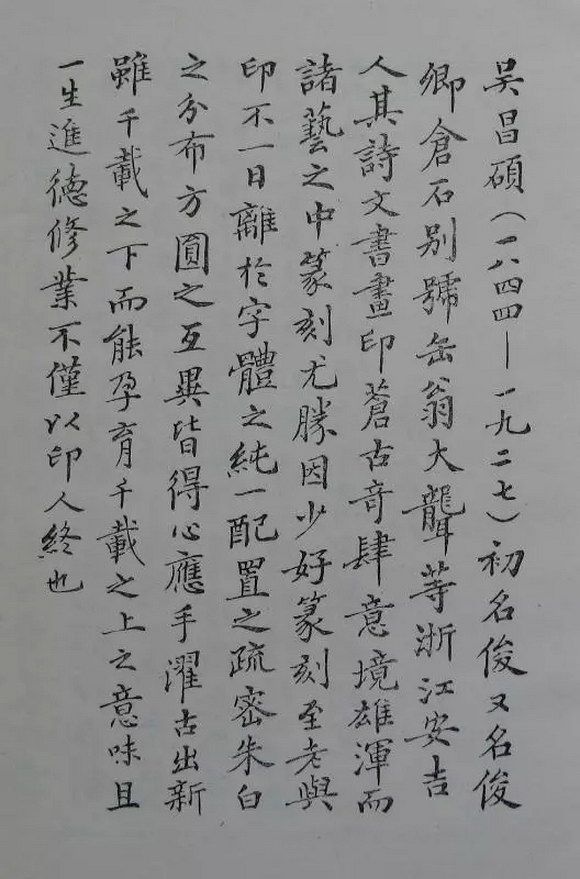 吴昌碩（一八四四—一九二七）初名俊又名俊
卿倉石别號缶翁大聾等浙江安吉
人其詩文書畫印蒼古奇肆意境雄渾而
諸藝之中篆刻尤勝因少好篆刻至老與
印不一日離於字體之純一配置之疏密朱白
之分布方圓之互異皆得心應手濯古出新
雖千載之下而能孕育千載之上之意味且
一生進德修業不僅以印人終也